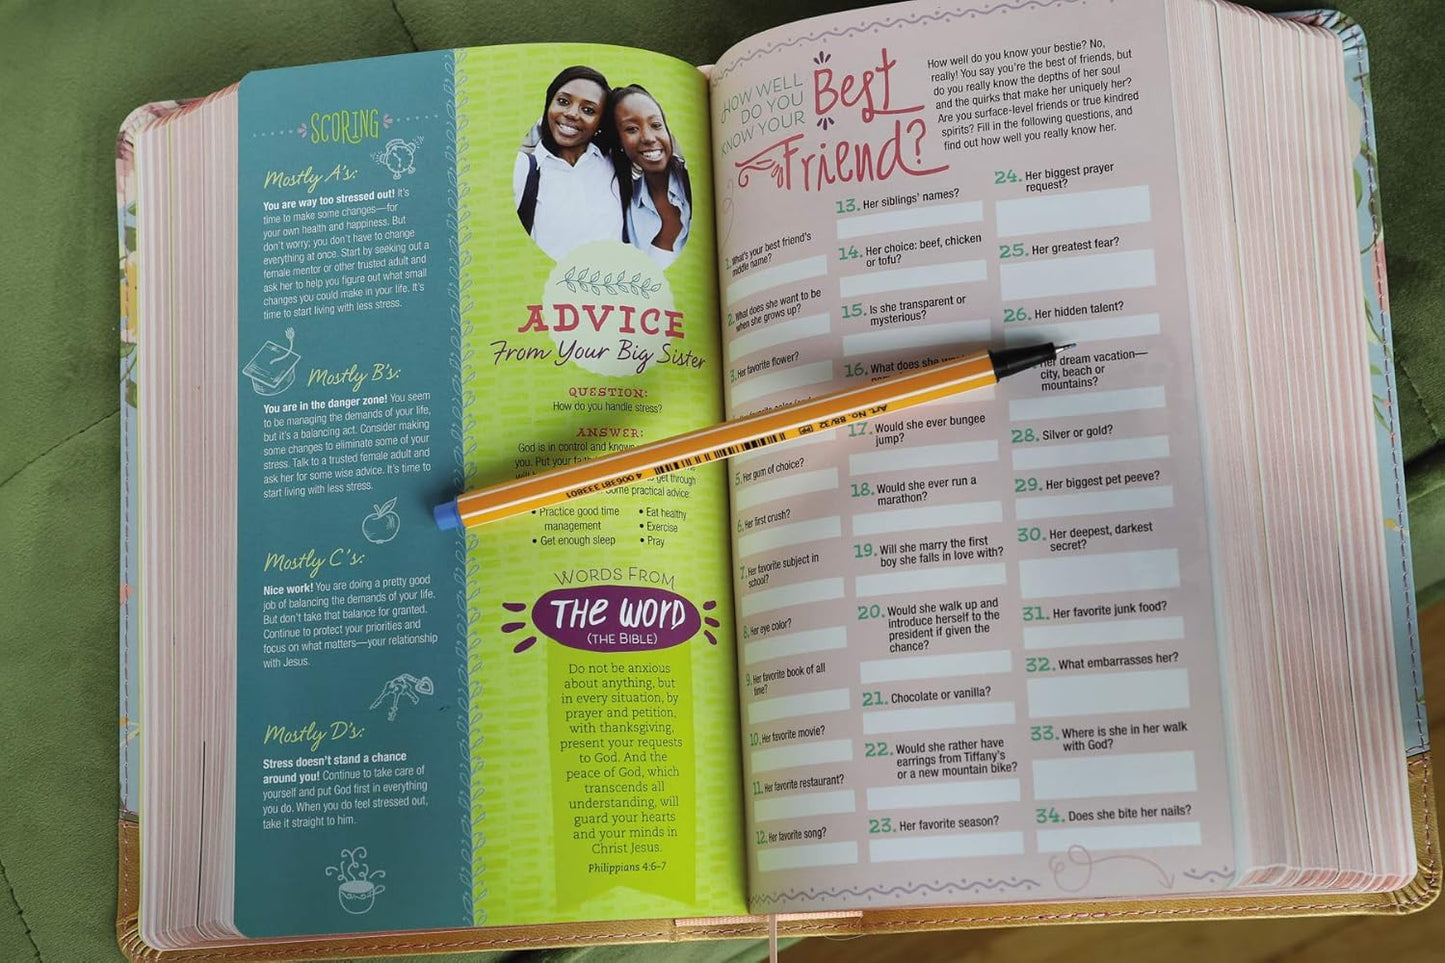 SCORING
Mostly A's:
You are way too stressed out! It's
time to make some changes—for
your own health and happiness. But
don't worry; you don't have to change
everything at once. Start by seeking out a
female mentor or other trusted adult and
ask her to help you figure out what small
changes you could make in your life. It's
time to start living with less stress.
Mostly B's:
You are in the danger zone! You seem
to be managing the demands of your life,
but it's a balancing act. Consider making
some changes to eliminate some of your
stress. Talk to a trusted female adult and
ask her for some wise advice. It's time to
start living with less stress.
Mostly C's:
Nice work! You are doing a pretty good
job of balancing the demands of your life.
But don't take that balance for granted.
Continue to protect your priorities and
focus on what matters—your relationship
with Jesus.
Mostly D's:
Stress doesn't stand a chance
around you! Continue to take care of
yourself and put God first in everything
you do. When you do feel stressed out,
take it straight to him.
ADVICE
From Your Big Sister
QUESTION:
How do you handle stress?
ANSWER:
God is in control and
you. Put your
get through
some practical advice:
• Practice good time
management
• Get enough sleep
• Eat healthy
• Exercise
• Pray
WORDS FROM
THE WORD
(THE BIBLE)
Do not be anxious
about anything, but
in every situation, by
prayer and petition,
with thanksgiving,
present your requests
to God. And the
peace of God, which
transcends all
understanding, will
guard your hearts
and your minds in
Christ Jesus.
Philippians 4:6–7
HOW WELL
DO YOU
KNOW YOUR
Best
Friend?
How well do you know your bestie? No,
really! You say you're the best of friends, but
do you really know the depths of her soul
and the quirks that make her uniquely her?
Are you surface-level friends or true kindred
spirits? Fill in the following questions, and
find out how well you really know her.
1. What's your best friend's
middle name?
2. What does she want to be
when she grows up?
3. Her favorite flower?
5. Her gum of choice?
6. Her first crush?
7. Her favorite subject in
school?
8. Her eye color?
9. Her favorite book of all
time?
10. Her favorite movie?
11. Her favorite restaurant?
12. Her favorite song?
13. Her siblings' names?
14. Her choice: beef, chicken
or tofu?
15. Is she transparent or
mysterious?
16. What does she
17. Would she ever bungee
jump?
18. Would she ever run a
marathon?
19. Will she marry the first
boy she falls in love with?
20. Would she walk up and
introduce herself to the
president if given the
chance?
21. Chocolate or vanilla?
22. Would she rather have
earrings from Tiffany's
or a new mountain bike?
23. Her favorite season?
24. Her biggest prayer
request?
25. Her greatest fear?
26. Her hidden talent?
Her dream vacation—
city, beach or
mountains?
28. Silver or gold?
29. Her biggest pet peeve?
30. Her deepest, darkest
secret?
31. Her favorite junk food?
32. What embarrasses her?
33. Where is she in her walk
with God?
34. Does she bite her nails?
Art. No. 88/32
4 006381 333801